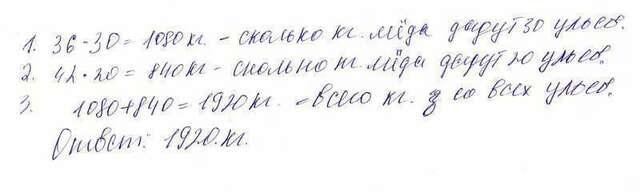 1. 36·30=1080кг. - сколько кг. мёда дадут 30 ульев.
2. 42·20=840кг - сколько кг. мёда дадут 20 ульев.
3. 1080+840=1920кг. - всего кг. со всех ульев.
Ответ: 1920.кг.